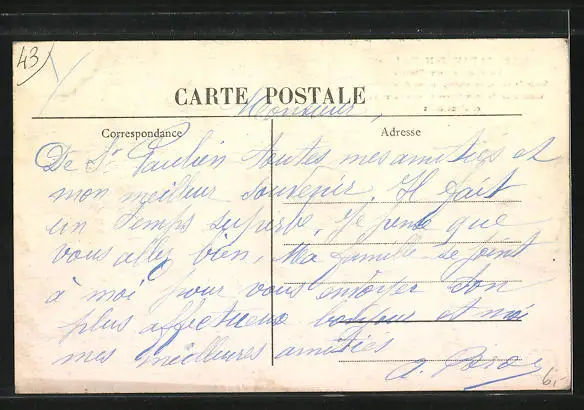 43
CARTE POSTALE
Monsieur,
Correspondance
Adresse
De St Paulien toutes mes amitiés et
mon meilleur souvenir. Il fait
un temps superbe. Je pense que
vous allez bien, Ma famille se joint
à moi pour vous envoyer son
plus affectueux bonjour et moi
mes meilleures amitiés
A.
6,-